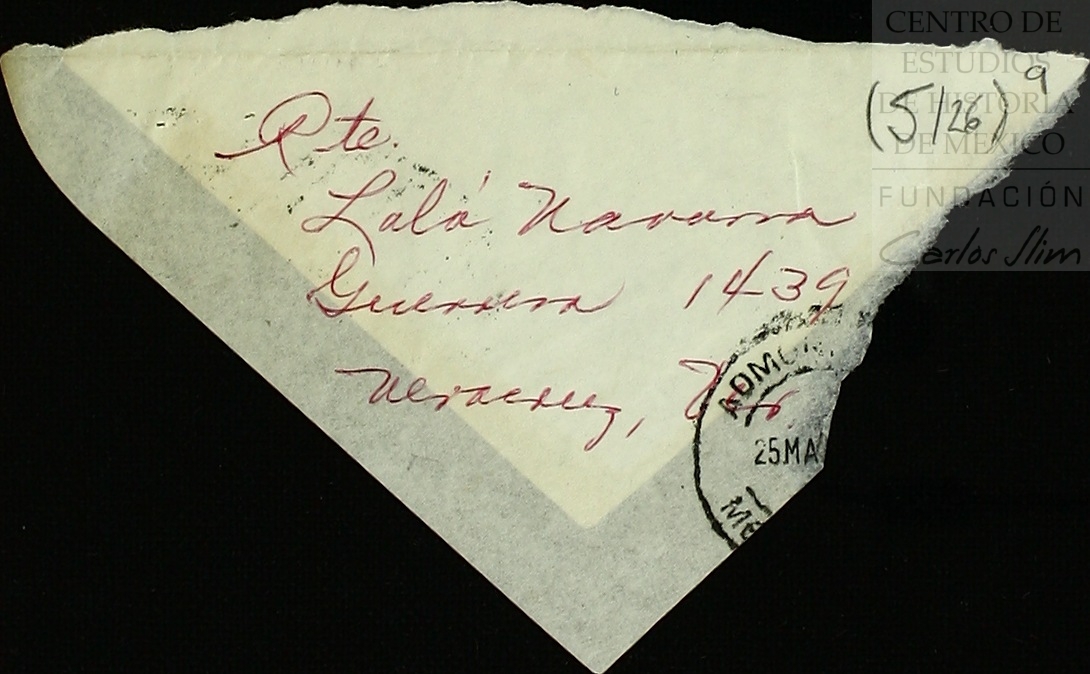 CENTRO DE
ESTUDIOS
DE HISTORIA
DE MÉXICO
FUNDACIÓN
Carlos Slim
(5/26) 9
Rte.
Lalá Navarra
Guerrero 1439
Veracruz, Ver
ADMON
25 MA
ME